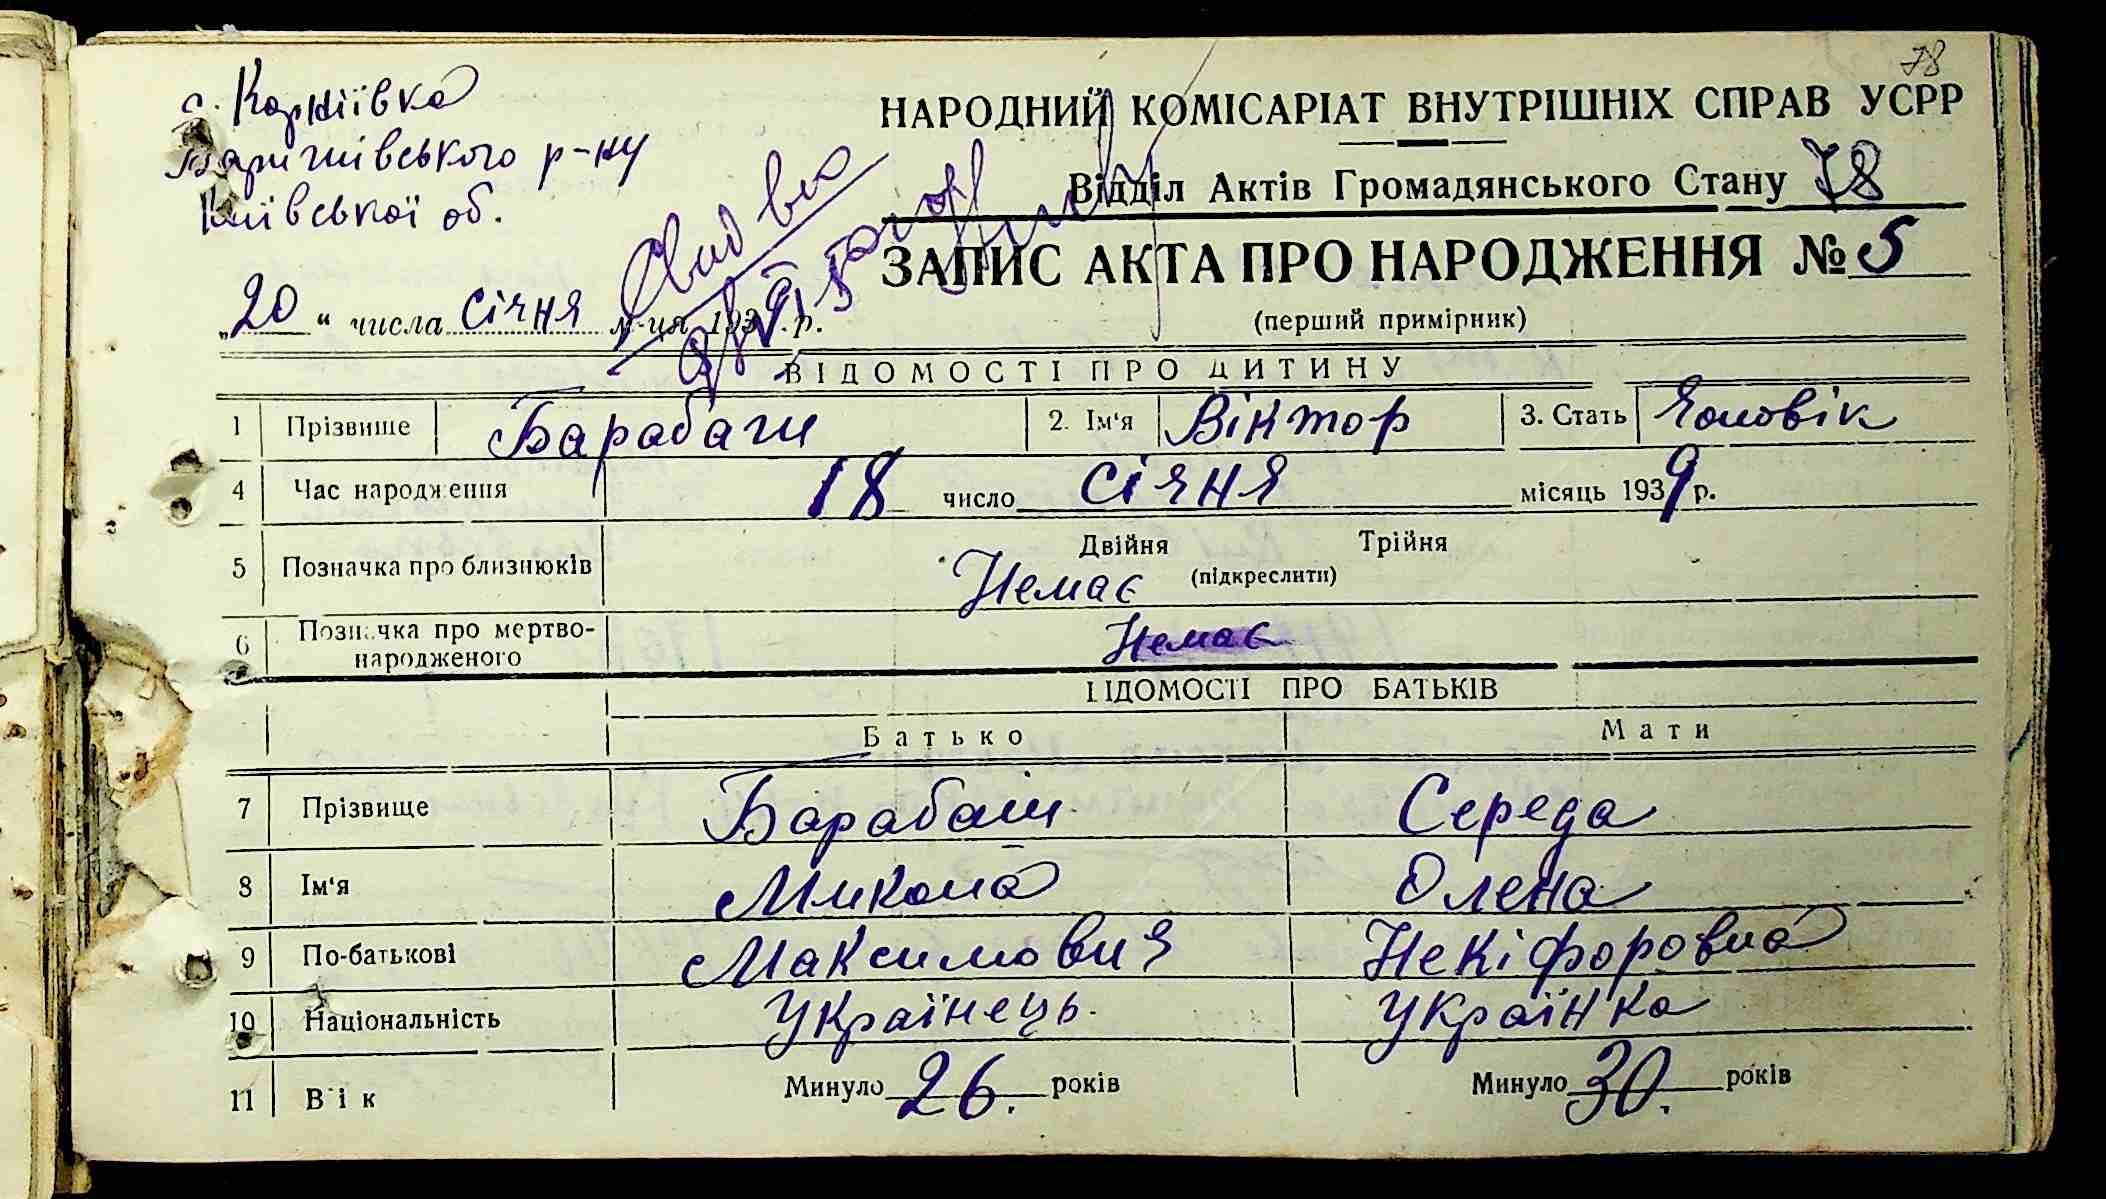 78
с. Корніївка
Баришівського р-ну
Київської об.
НАРОДНИЙ КОМІСАРІАТ ВНУТРІШНІХ СПРАВ УСРР
Відділ Актів Громадянського Стану 78
ЗАПИС АКТА ПРО НАРОДЖЕННЯ № 5
(перший примірник)
„20“ числа січня м-ця 1939 р.
ВІДОМОСТІ ПРО ДИТИНУ
1 Прізвище Барабаш 2. Ім'я Віктор 3. Стать Чоловік
4 Час народження 18 число січня місяць 1939 р.
5 Позначка про близнюків Двійня Трійня
Немає (підкреслити)
6 Позначка про мертво-
народженого Немає
ВІДОМОСТІ ПРО БАТЬКІВ
Батько Мати
7 Прізвище Барабаш Середа
8 Ім'я Микола Олена
9 По-батькові Максимович Некіфоровна
10 Національність Українець. Українка
11 Вік Минуло 26. років Минуло 30. років